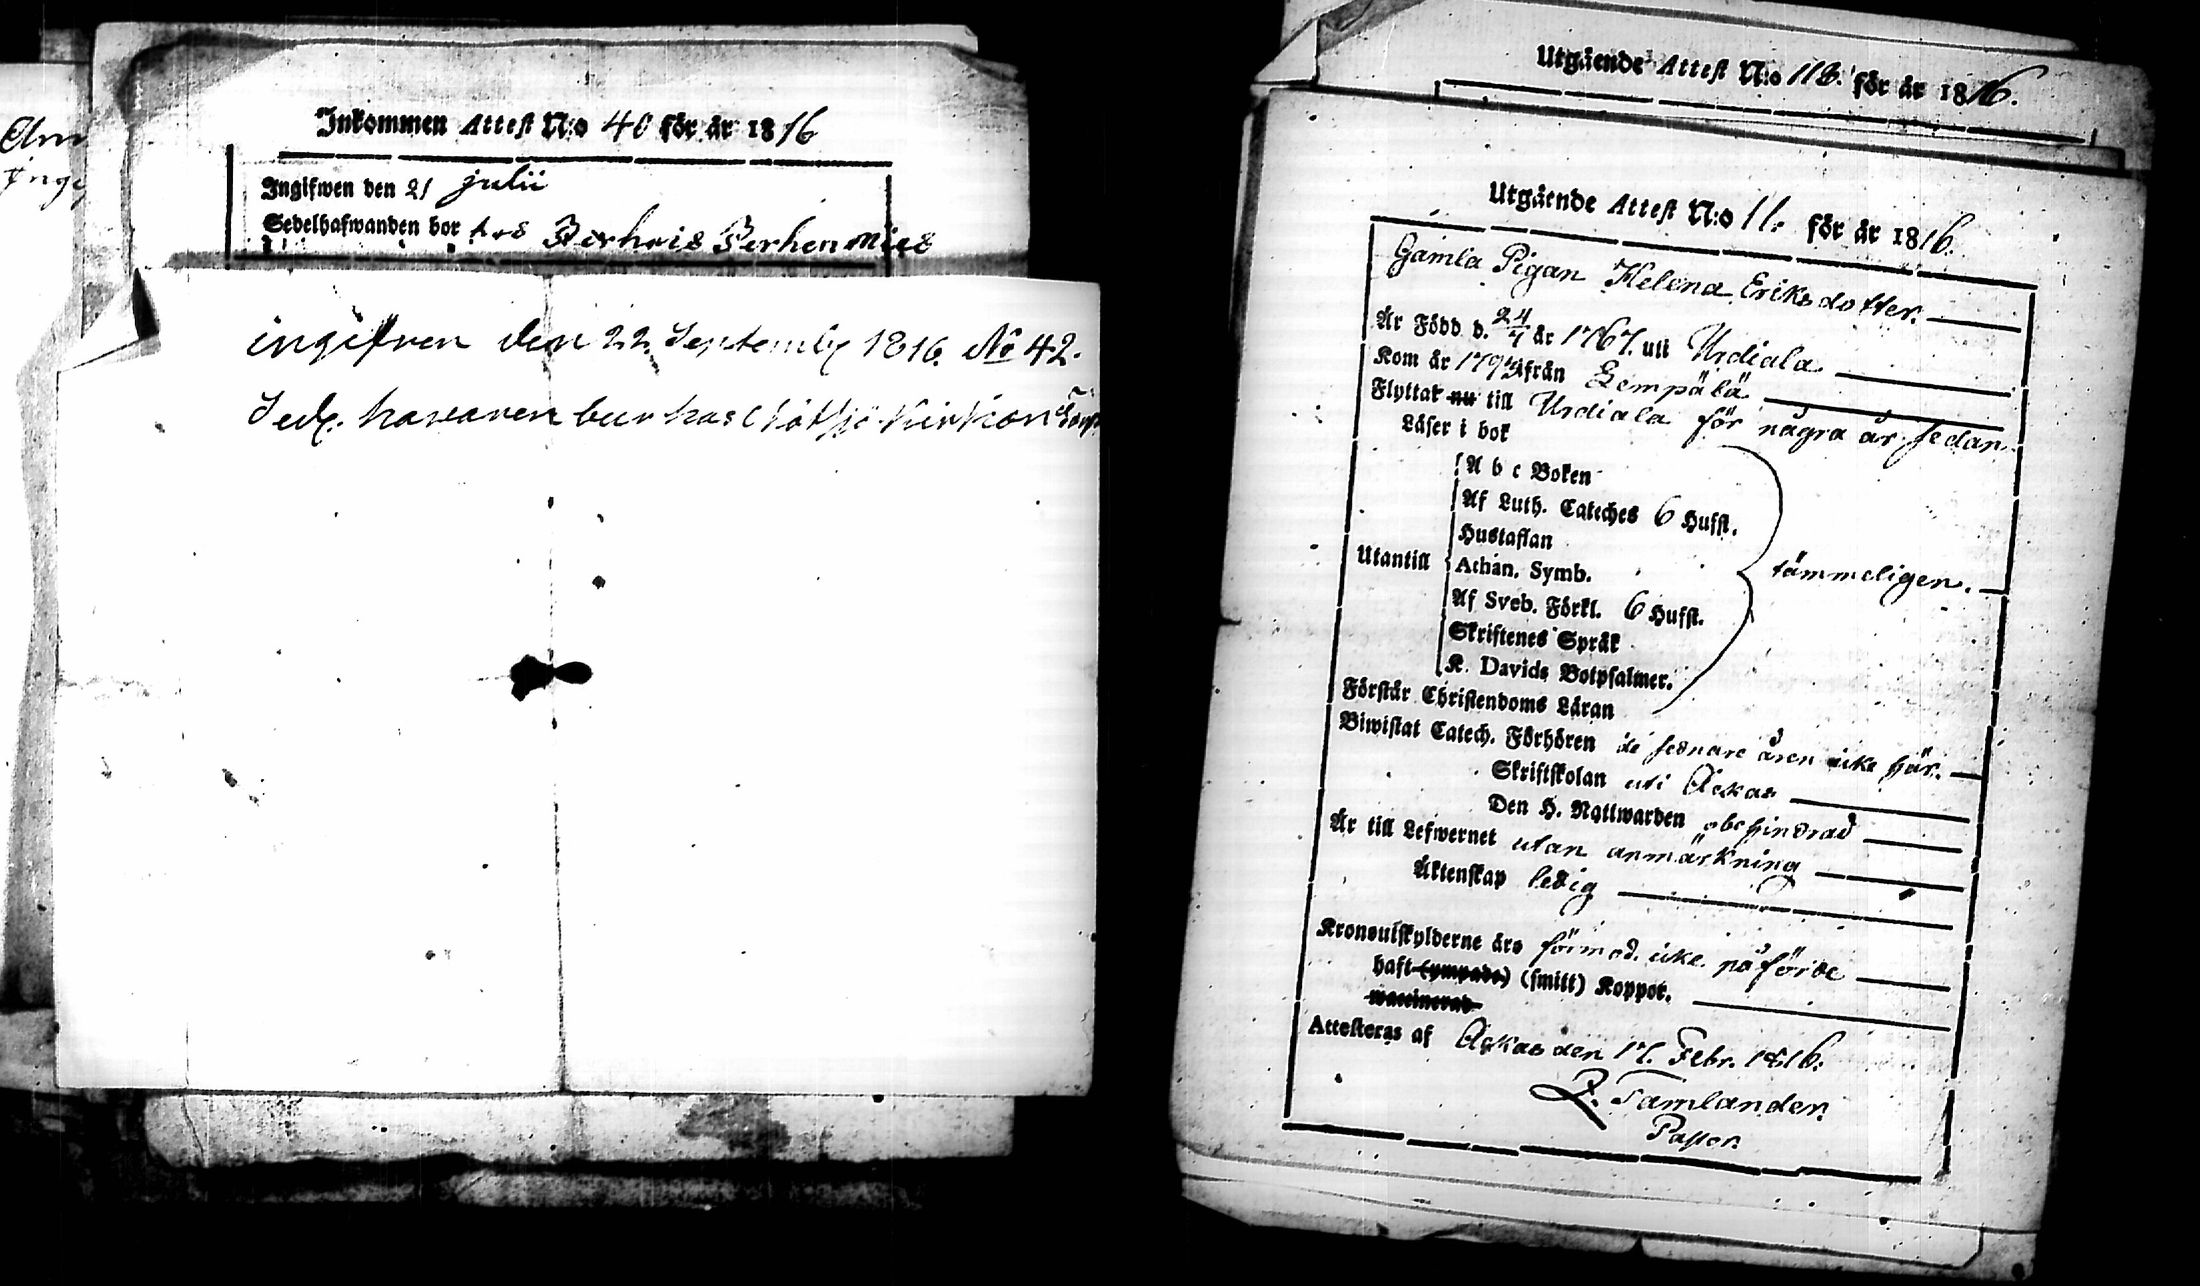 Inkommen Attest N:o 40 för år 1816
Ingifwen den 21 julii
Sedelhafwanden bor hos Perhenmies
ingifven den 22 Septembr 1816. No 42.
Sed. havaren bor hos
Utgående Attest N:o 113. för år 1816.
Utgående Attest N:o 11. för år 1816.
Gamla Pigan Helena Eriksdotter.
Är Född d. 24/4 år 1767. uti Urdiala
Kom år ifrån Lempälä
Flyttat nu till Urdiala för några år sedan.
Läser i bok
A b c Boken
Af Luth. Cateches 6 Hufst.
Hustaflan
Utantill Athan. Symb. tämmeligen.
Af Sveb. Förkl. 6 Hufst.
Skriftenes Språk
K. Davids Botpsalmer.
Förstår Christendoms Läran
Biwistat Catech. Förhören de sednare åren icke här.
Skriftskolan uti Ackas
Den H. Nattwarden obehindrad
Är till Lefwernet utan anmärkning
Äktenskap ledig
Kronoutskylderne äro förmod. icke påförde
haft (ympade) (smitt) Koppor.
waccinerad
Attesteras af Ackas den 17. Febr. 1816.
Tamlander.
Pastor.